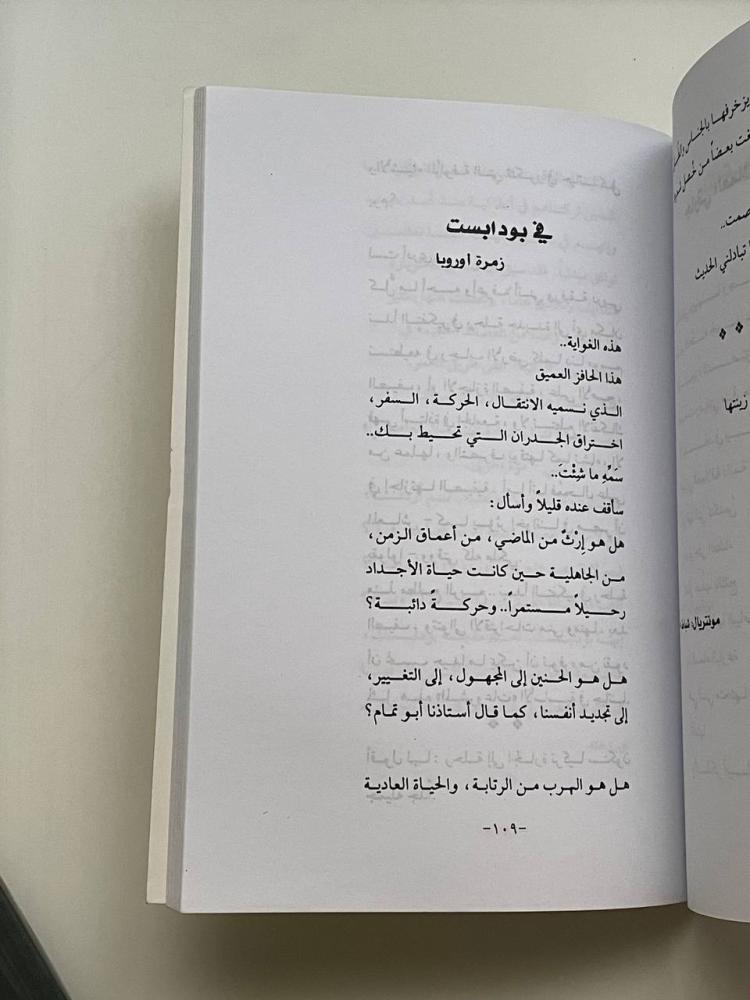 في بودابست
زمرة اوروبا
هذه الغواية..
هذا الحافز العميق
الذي نسميه الانتقال، الحركة، السفر،
اختراق الجدران التي تحيط بك..
سَمِّهِ ما شِئْتَ..
سأقف عنده قليلاً وأسأل:
هل هو إرْثٌ من الماضي، من أعماق الزمن،
من الجاهلية حين كانت حياة الأجداد
رحيلاً مستمراً.. وحركةً دائبة؟
هل هو الحنين إلى المجهول، إلى التغيير،
إلى تجديد أنفسنا، كما قال أستاذنا أبو تمام؟
هل هو الهرب من الرتابة، والحياة العادية
-١٠٩-
بعضاً من خُصل
صمت..
تبادلني الحديث
زينتها
مونتريال: